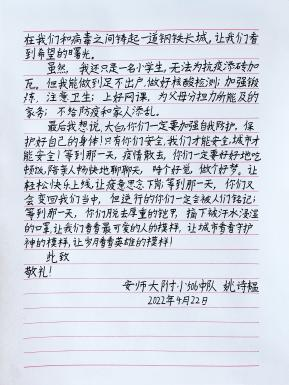 在我们和病毒之间铸起一道钢铁长城，让我们看
到希望的曙光。
虽然，我还只是一名小学生，无法为抗疫添砖加
瓦。但我能做到足不出户，做好核酸检测；加强锻
炼，注意卫生；上好网课，为父母分担力所能及的
家务；不给防疫和家人添乱。
最后我想说，大白，你们一定要加强自我防护，保
护好自己的身体！只有你们安全，我们才能安全，城市才
能安全！等到那一天，疫情散去，你们一定要好好地吃
顿饭，陪亲人畅快地聊聊天，睡个好觉，做个好梦。让
轻松快乐上线，让疲惫思念下岗；等到那一天，你们又
会变回我们当中，但逆行的你们一定会被人们铭记；
等到那一天，你们脱去厚重的铠甲，摘下被汗水浸湿
的口罩，让我们看看最可爱的人的模样，让城市看看守护
神的模样，让岁月看看英雄的模样！
此致
敬礼！
安师大附小506中队 姚诗韫
2022年4月22日